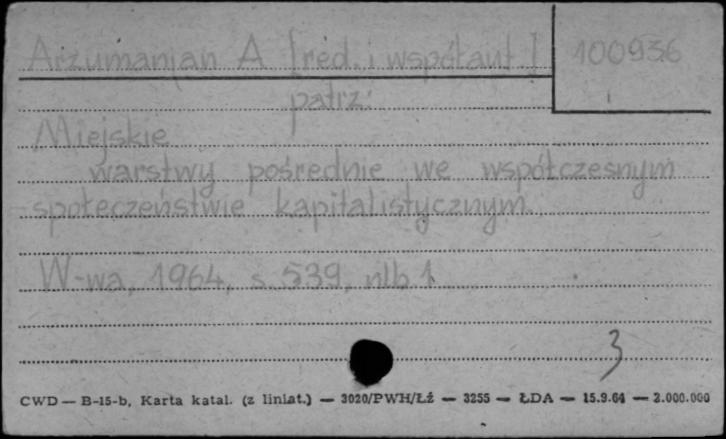 Arzumanjan A [red. i współaut.] 100936
patrz:
Miejskie
warstwy pośrednie we współczesnym
społeczeństwie kapitalistycznym.
W-wa, 1964, s. 539, nlb. 1
3
CWD — B-15-b, Karta katal. (z liniat.) — 3020/PWH/Łź — 3255 — ŁDA — 15.9.64 — 2.000.000